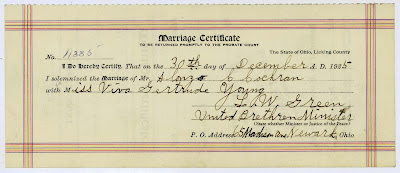 Marriage Certificate
TO BE RETURNED PROMPTLY TO THE PROBATE COURT
No. 11385 The State of Ohio, Licking County
I Do Hereby Certify, That on the 30th day of December A. D. 1885
I solemnized the Marriage of Mr. Alonzo C Cochran
with Miss Viva Gertrude Young
L. W. Green
United Brethren Minister
(State whether Minister or Justice of the Peace)
P. O. Address Madison Ave Newark, Ohio